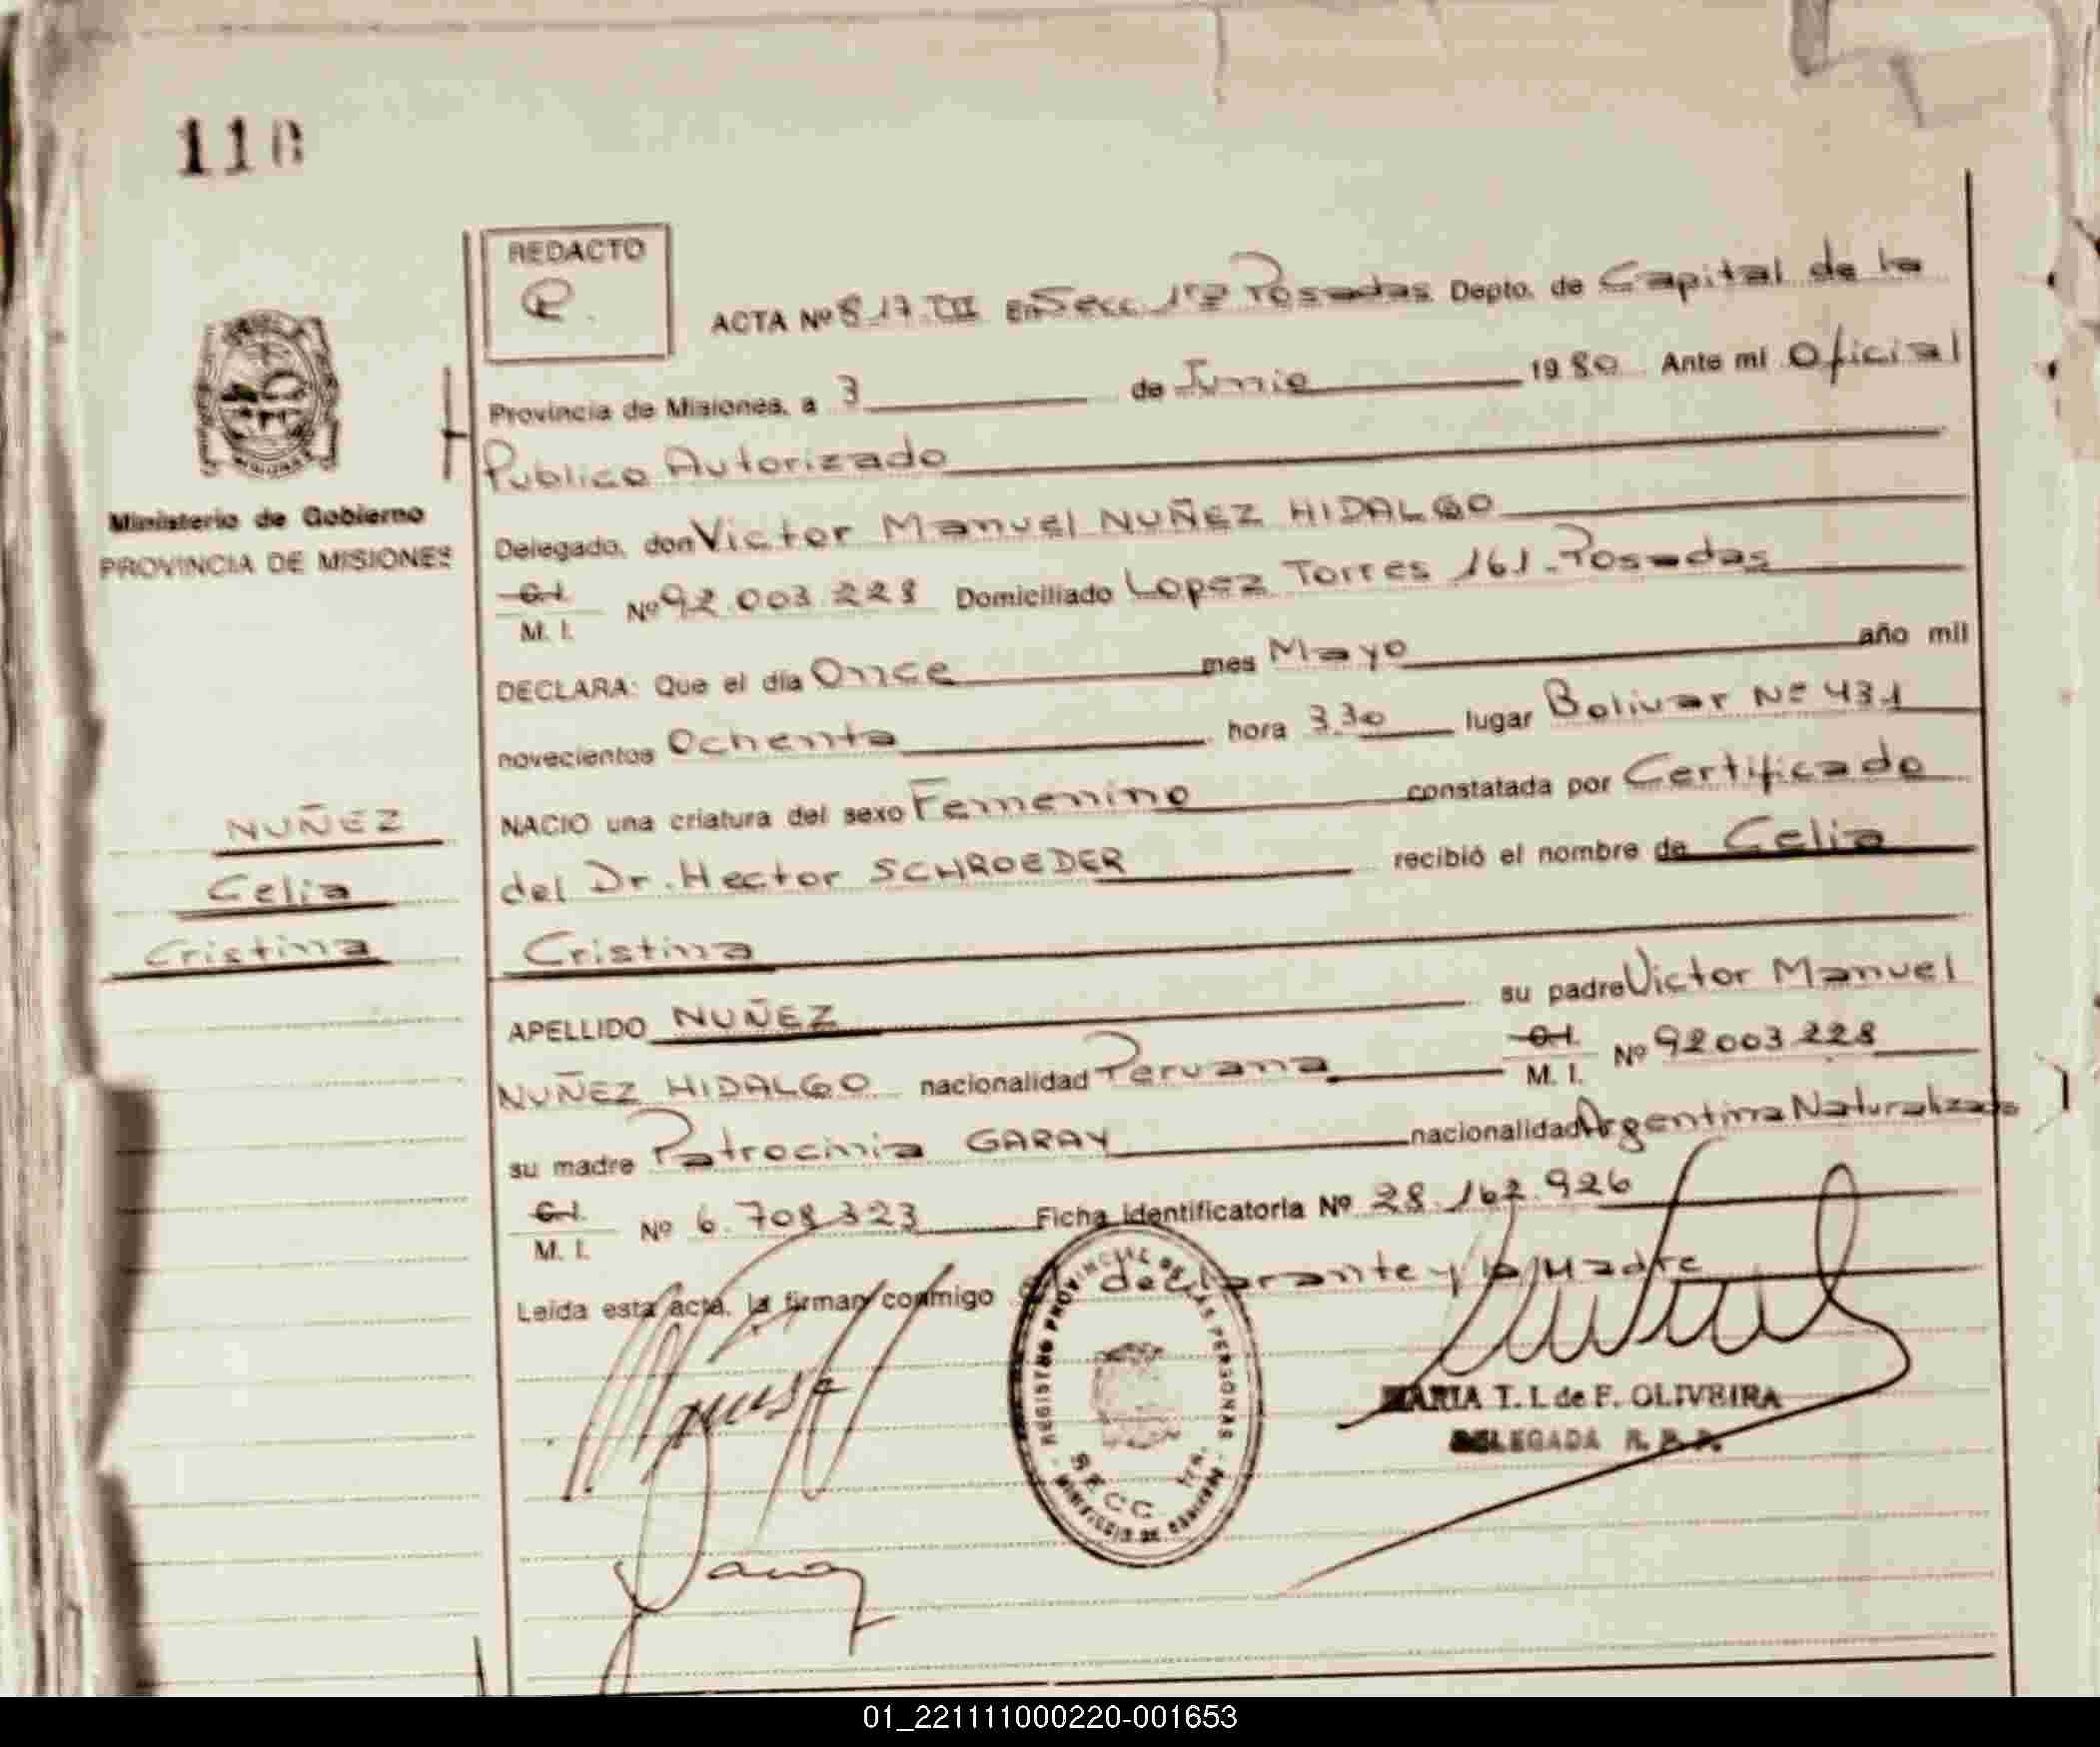 118
REDACTO
ACTA Nº 817.III En Secc 1ra Posadas Depto. de Capital de la
Provincia de Misiones, a 3 de Junio 1980 Ante mi Oficial
Publico Autorizado
Ministerio de Gobierno
PROVINCIA DE MISIONES
Delegado, don Victor Manuel NUÑEZ HIDALGO
C.I.
M. I. Nº 92.003.228 Domiciliado Lopez Torres 161-Posadas
DECLARA: Que el día Once mes Mayo año mil
novecientos Ochenta hora 3.30 lugar Bolivar Nº 431
NACIO una criatura del sexo Femenino constatada por Certificado
del Dr. Hector SCHROEDER recibió el nombre de Celia
Cristina
NUÑEZ
Celia
Cristina
APELLIDO NUÑEZ su padre Victor Manuel
NUÑEZ HIDALGO nacionalidad Peruana C.I.
M. I. Nº 92003.228
su madre Patrocinia GARAY nacionalidad Argentina Naturalizada
C.I.
M. I. Nº 6.708.323 Ficha identificatoria Nº 28.162.926
Leída esta acta, la firman conmigo el declarante y la Madre
REGISTRO PROVINCIAL DE LAS PERSONAS
SECC. 1ra.
MINISTERIO DE GOBIERNO
MARIA T. I. de F. OLIVEIRA
DELEGADA R. P. P.
Garay
01_221111000220-001653